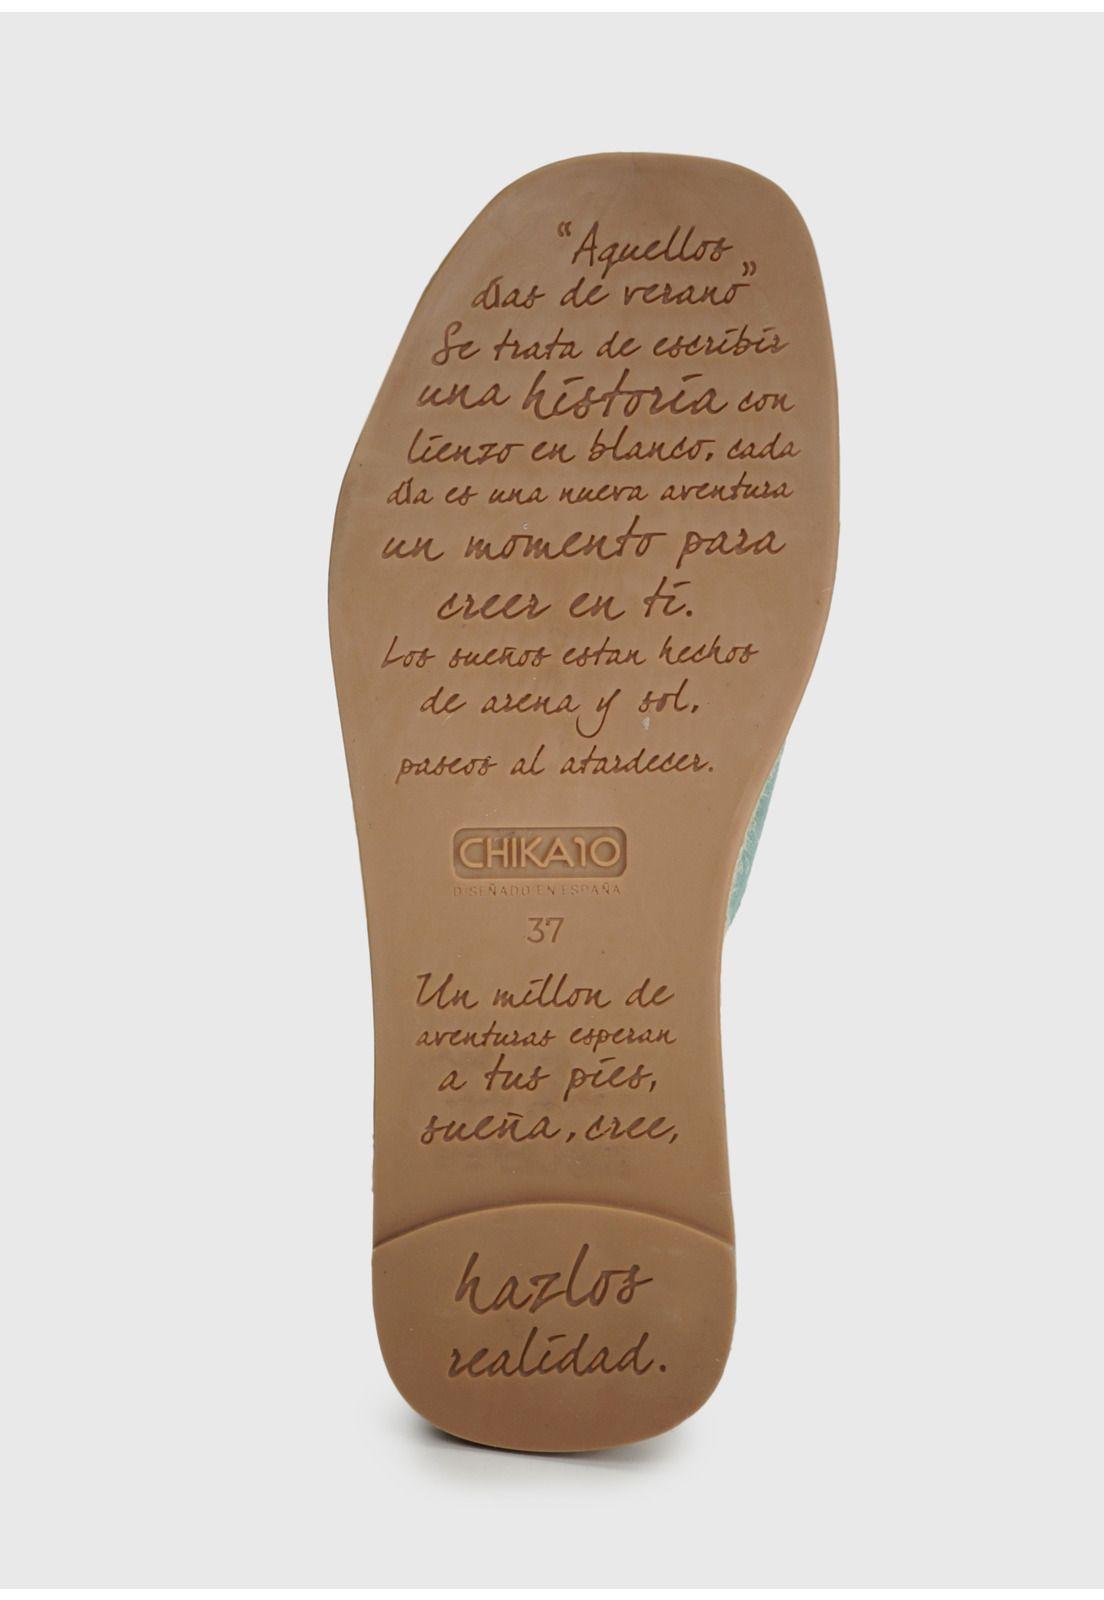 “Aquellos
días de verano”
Se trata de escribir
una historia con
lienzo en blanco, cada
día es una nueva aventura
un momento para
creer en ti.
Los sueños estan hechos
de arena y sol,
paseos al atardecer.
CHIKA10
DISEÑADO EN ESPAÑA
37
Un millon de
aventuras esperan
a tus pies,
sueña, cree,
hazlos
realidad.